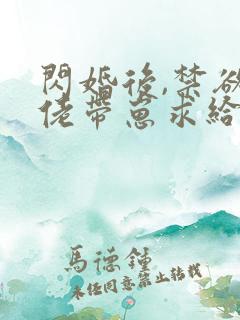 閃婚後,禁欲
佬帶崽求給
馬德鍾
未经同意禁止转载